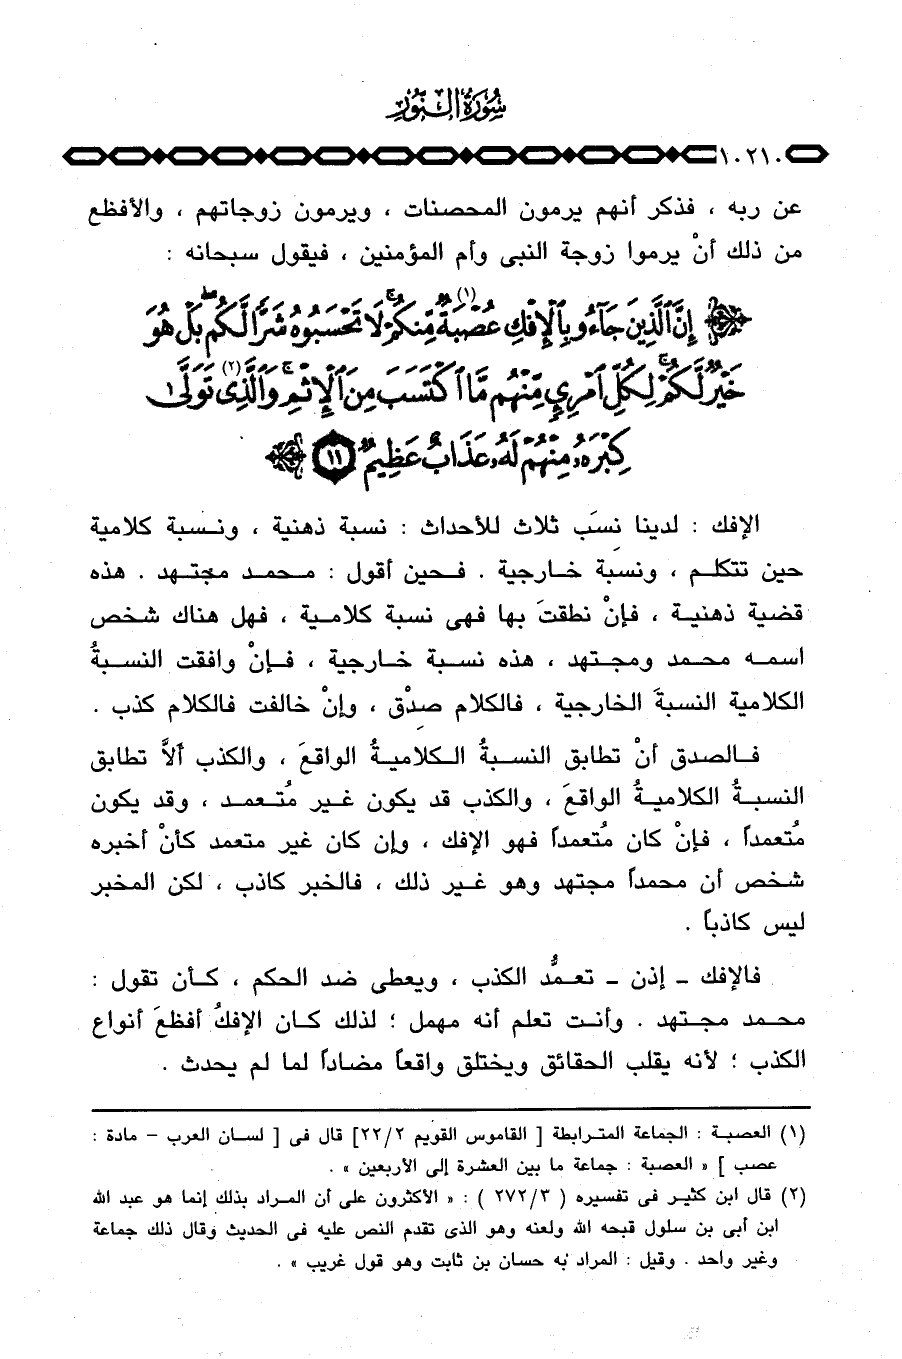 سورة النور
١٠٢١٠
عن ربه ، فذكر أنهم يرمون المحصنات ، ويرمون زوجاتهم ، والأفظع
من ذلك أنْ يرموا زوجة النبى وأم المؤمنين ، فيقول سبحانه :
إِنَّ ٱلَّذِينَ جَآءُو بِٱلْإِفْكِ عُصْبَةٌ (١) مِّنكُمْ ۚ لَا تَحْسَبُوهُ شَرًّا لَّكُم ۖ بَلْ هُوَ
خَيْرٌ لَّكُمْ ۚ لِكُلِّ ٱمْرِئٍ مِّنْهُم مَّا ٱكْتَسَبَ مِنَ ٱلْإِثْمِ ۚ وَٱلَّذِى (٢) تَوَلَّىٰ
كِبْرَهُۥ مِنْهُمْ لَهُۥ عَذَابٌ عَظِيمٌ ١١
الإفك : لدينا نسَب ثلاث للأحداث : نسبة ذهنية ، ونسبة كلامية
حين تتكلم ، ونسبة خارجية . فحين أقول : محمد مجتهد . هذه
قضية ذهنية ، فإنْ نطقتَ بها فهى نسبة كلامية ، فهل هناك شخص
اسمه محمد ومجتهد ، هذه نسبة خارجية ، فإنْ وافقت النسبةُ
الكلامية النسبةَ الخارجية ، فالكلام صدْق ، وإنْ خالفت فالكلام كذب .
فالصدق أنْ تطابق النسبةُ الكلاميةُ الواقعَ ، والكذب ألاَّ تطابق
النسبةُ الكلاميةُ الواقعَ ، والكذب قد يكون غير مُتعمد ، وقد يكون
مُتعمداً ، فإنْ كان مُتعمداً فهو الإفك ، وإن كان غير متعمد كأنْ أخبره
شخص أن محمداً مجتهد وهو غير ذلك ، فالخبر كاذب ، لكن المخبر
ليس كاذباً .
فالإفك - إذن - تعمُّد الكذب ، ويعطى ضد الحكم ، كأن تقول :
محمد مجتهد . وأنت تعلم أنه مهمل ؛ لذلك كان الإفكُ أفظعَ أنواع
الكذب ؛ لأنه يقلب الحقائق ويختلق واقعاً مضاداً لما لم يحدث .
(١) العصبة : الجماعة المترابطة [ القاموس القويم ٢٢/٢] قال فى [ لسان العرب - مادة :
عصب ] « العصبة : جماعة ما بين العشرة إلى الأربعين » .
(٢) قال ابن كثير فى تفسيره ( ٢٧٢/٣ ) : « الأكثرون على أن المراد بذلك إنما هو عبد الله
ابن أبى بن سلول قبحه الله ولعنه وهو الذى تقدم النص عليه فى الحديث وقال ذلك جماعة
وغير واحد . وقيل : المراد به حسان بن ثابت وهو قول غريب » .